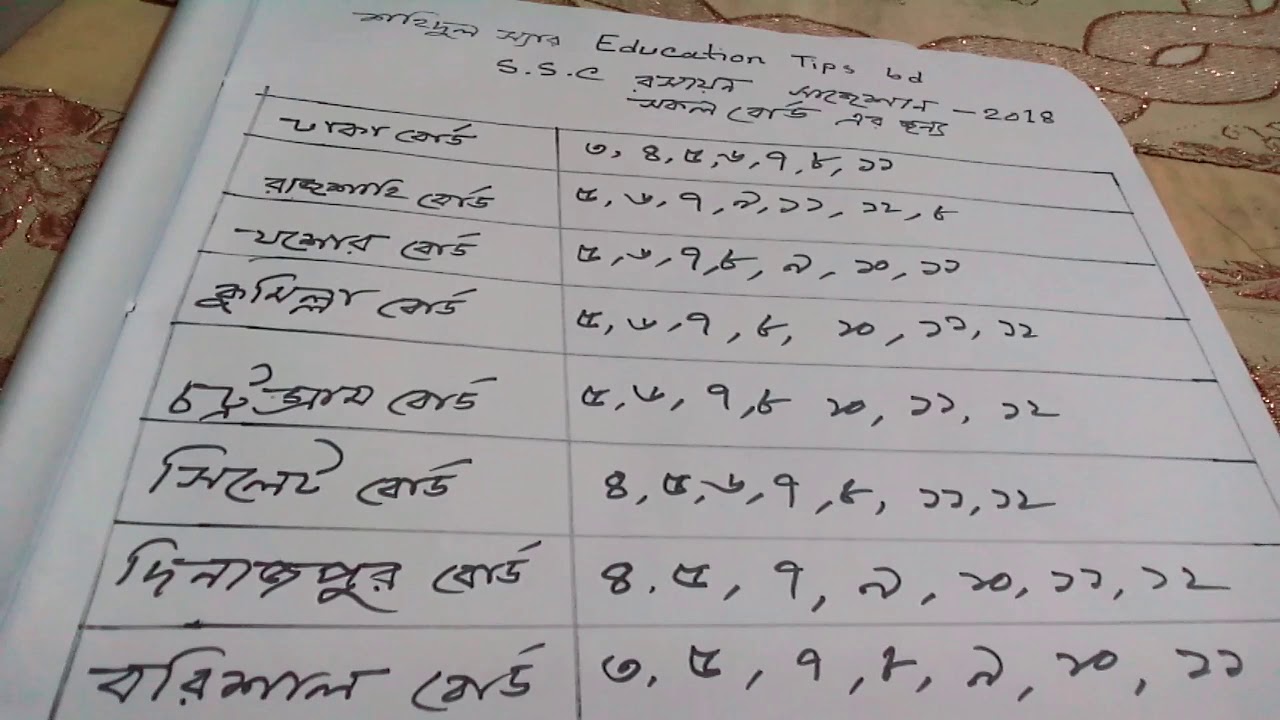 শাহিদুল স্যার Education Tips bd
S.S.C রসায়ন সাজেশান - 2018
সকল বোর্ড এর জন্য
ঢাকা বোর্ড ৩, ৪, ৫, ৬, ৭, ৮, ১১
রাজশাহি বোর্ড ৫, ৬, ৭, ৯, ১১, ১২, ৮
যশোর বোর্ড ৫, ৬, ৭, ৮, ৯, ১০, ১১
কুমিল্লা বোর্ড ৫, ৬, ৭, ৮, ১০, ১১, ১২
চট্টগ্রাম বোর্ড ৫, ৬, ৭, ৮ ১০, ১১, ১২
সিলেট বোর্ড ৪, ৫, ৬, ৭, ৮, ১১, ১২
দিনাজপুর বোর্ড ৪. ৫, ৭, ৯, ১০, ১১, ১২
বরিশাল বোর্ড ৩, ৫, ৭, ৮, ৯, ১০, ১১